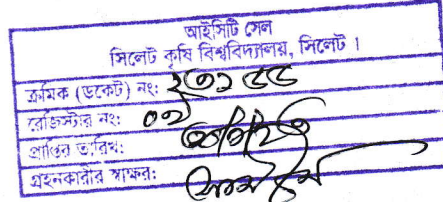 আইসিটি সেল
সিলেট কৃষি বিশ্ববিদ্যালয়, সিলেট ।
ক্রমিক (ডকেট) নং:
রেজিস্টার নং: ০২
প্রাপ্তির তারিখ:
গ্রহনকারীর স্বাক্ষর: